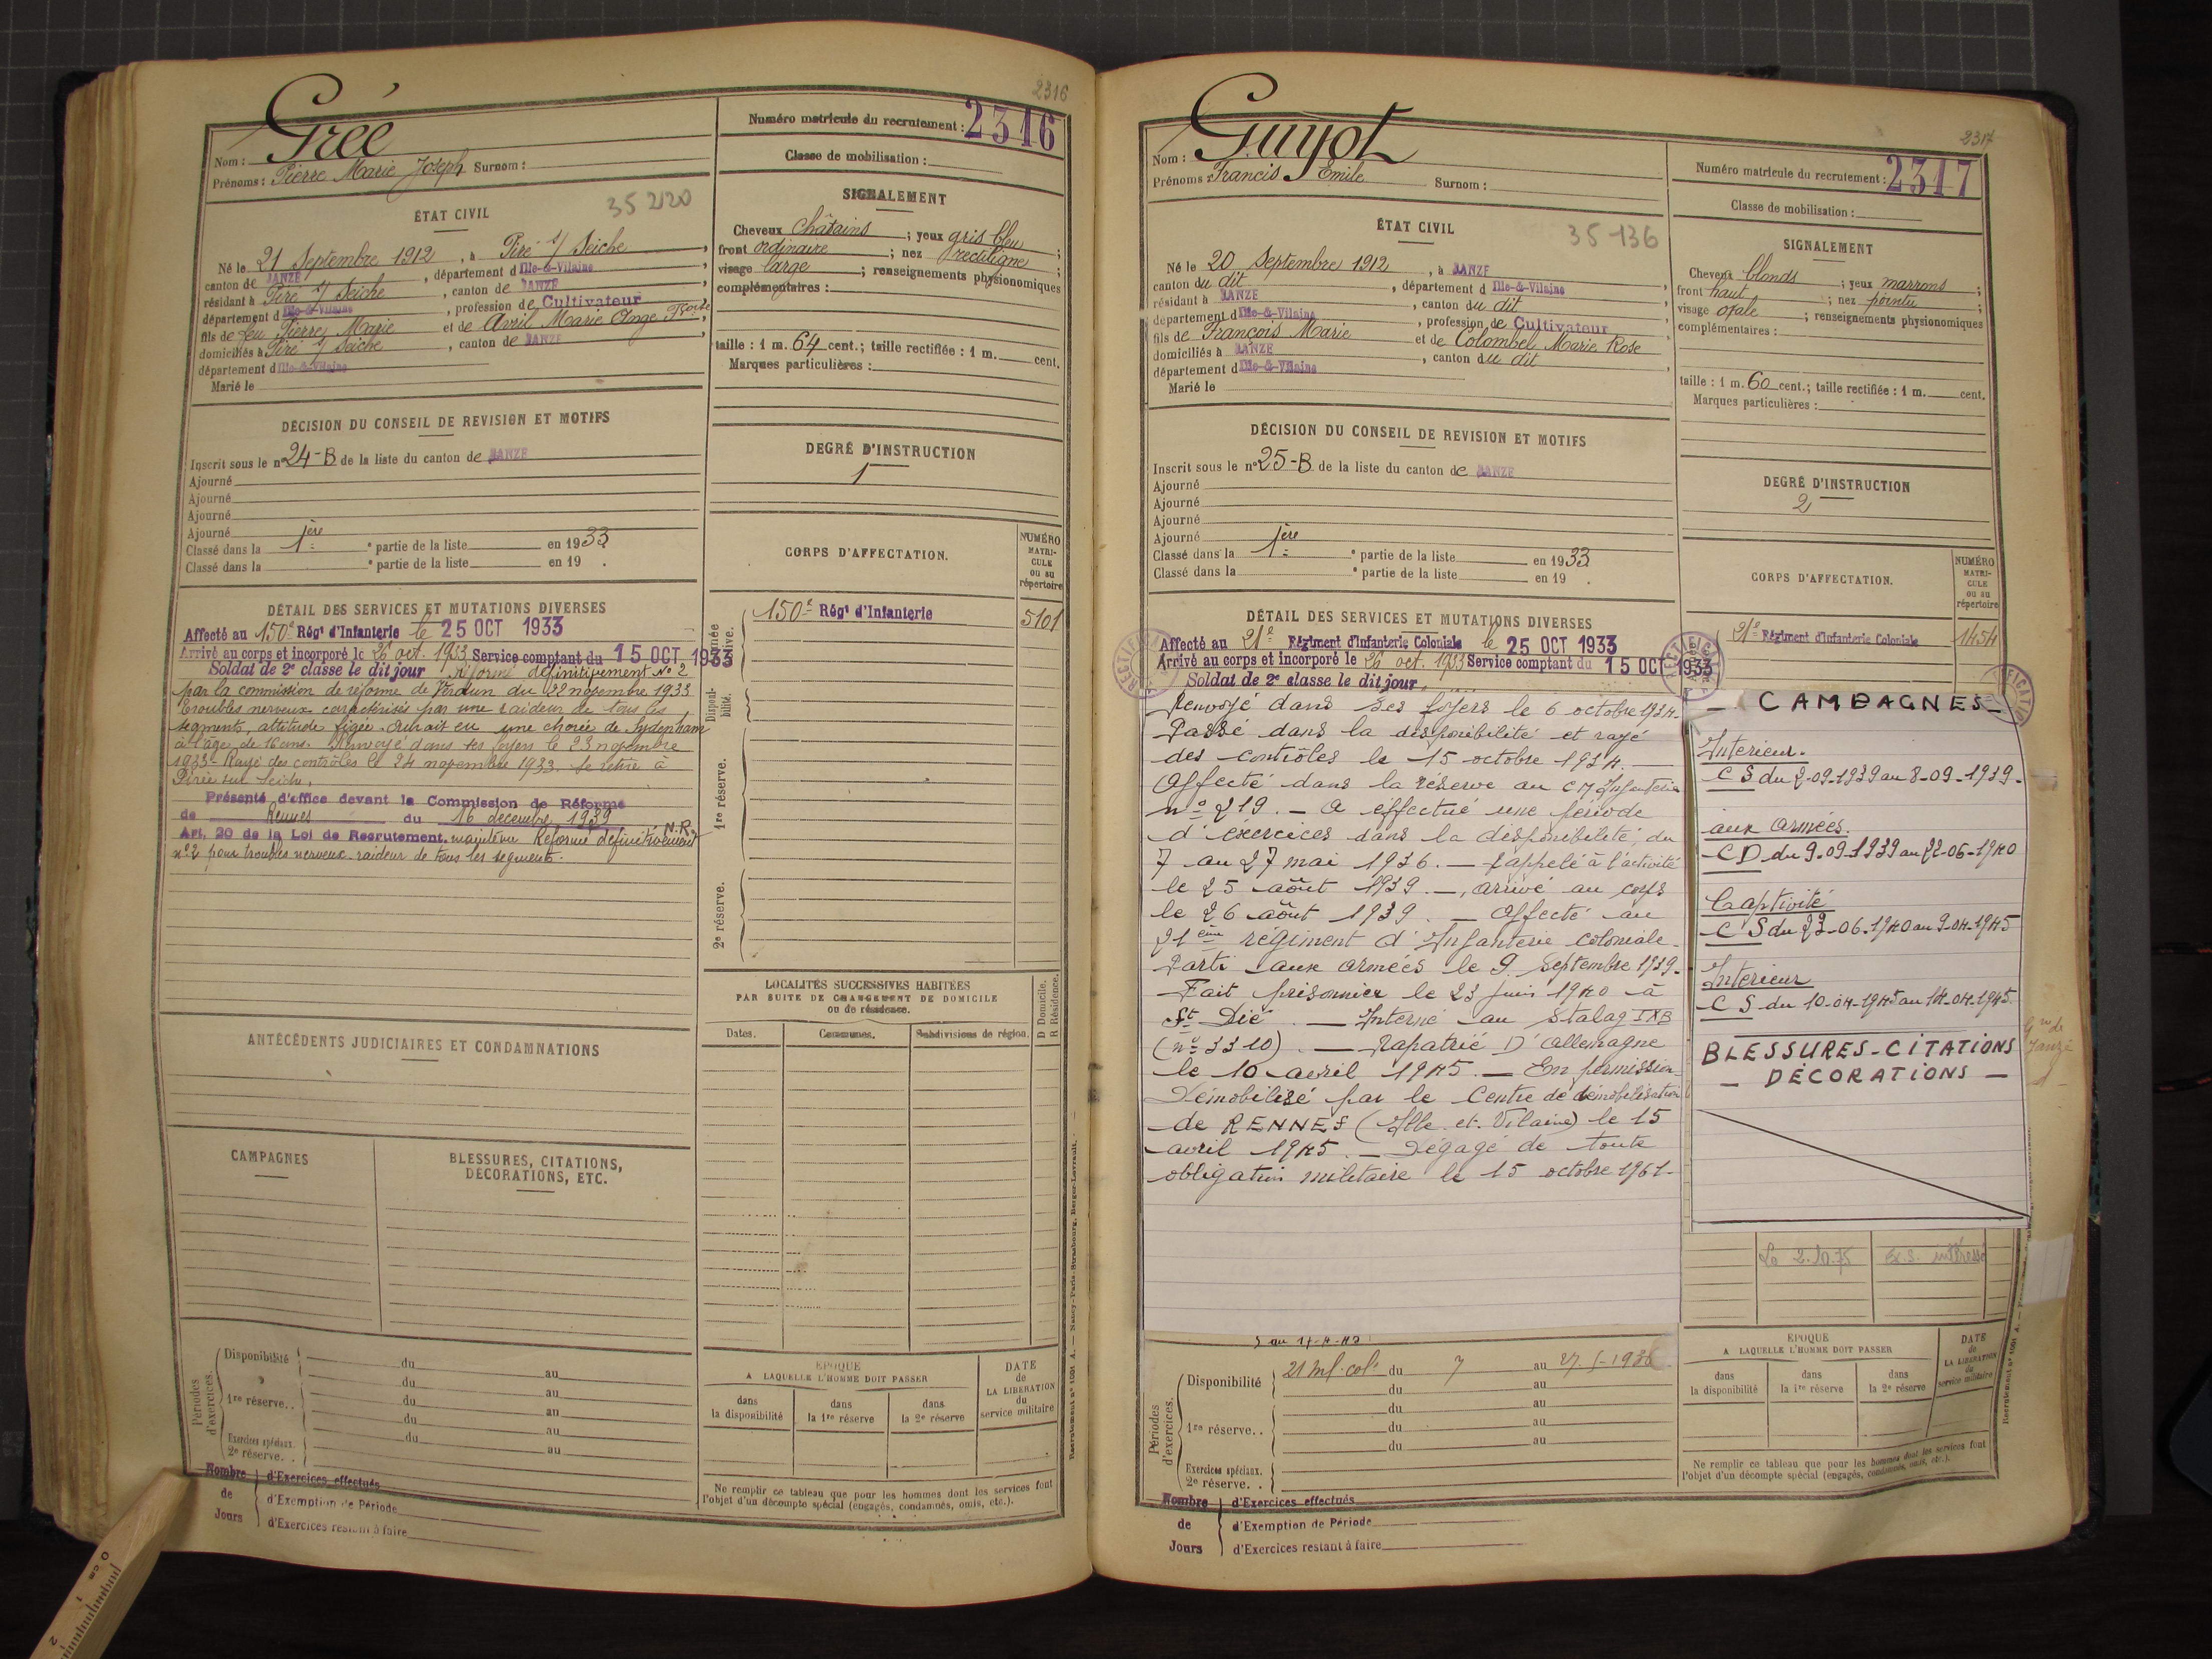 2316
Grée
Nom :
Prénoms : Pierre Marie Joseph Surnom :
Numéro matricule du recrutement : 2316
Classe de mobilisation :
ÉTAT CIVIL
35 2120
Né le 21 Septembre 1912, à Piré s/ Seiche,
canton de JANZÉ, département d Ille-&-Vilaine,
résidant à Piré s/ Seiche, canton de JANZÉ,
département d Ille-&-Vilaine, profession de Cultivateur
fils de feu Pierre Marie et de Avril Marie Ange
domiciliés à Piré s/ Seiche, canton de JANZÉ,
département d Ille-&-Vilaine
Marié le
SIGNALEMENT
Cheveux Châtains ; yeux gris bleu ;
front ordinaire ; nez rectiligne ;
visage large ; renseignements physionomiques
complémentaires :
taille : 1 m. 64 cent.; taille rectifiée : 1 m. cent.
Marques particulières :
DÉCISION DU CONSEIL DE REVISION ET MOTIFS
Inscrit sous le n° 24-B de la liste du canton de JANZÉ
Ajourné
Ajourné
Ajourné
Ajourné
Classé dans la 1ère partie de la liste en 1933.
Classé dans la e partie de la liste en 19 .
DEGRÉ D'INSTRUCTION
1
CORPS D'AFFECTATION.
NUMÉRO MATRICULE ou au répertoire
150e Régt d'Infanterie 5101
Armée active.
Disponibilité.
1re réserve.
2e réserve.
DÉTAIL DES SERVICES ET MUTATIONS DIVERSES
Affecté au 150e Régt d'Infanterie le 25 OCT 1933
Arrivé au corps et incorporé le 26 oct. 1933 Service comptant du 15 OCT 1933
Soldat de 2e classe le dit jour Réformé définitivement N° 2
par la commission de réforme de Verdun du 22 novembre 1933
Troubles nerveux caractérisés par une raideur de tous les
segments, attitude figée. Aurait eu une chorée de Sydenham
à l'âge de 16 ans. Renvoyé dans ses foyers le 23 novembre
1933. Rayé des contrôles le 24 novembre 1933. Se retire à
Piré sur Seiche.
Présenté d'office devant la Commission de Réforme
de Rennes du 16 décembre 1939
Art. 20 de la Loi de Recrutement. maintenu Réformé définitivement N.R.
n°2 pour troubles nerveux. raideur de tous les segments.
ANTÉCÉDENTS JUDICIAIRES ET CONDAMNATIONS
LOCALITÉS SUCCESSIVES HABITÉES
PAR SUITE DE CHANGEMENT DE DOMICILE
ou de résidence.
Dates. Communes. Subdivisions de région. D Domicile. R Résidence.
CAMPAGNES
BLESSURES, CITATIONS,
DÉCORATIONS, ETC.
Périodes d'exercices.
Disponibilité du au
du au
1re réserve.. du au
du au
du au
Exercices spéciaux.
2e réserve. . au
ÉPOQUE
A LAQUELLE L'HOMME DOIT PASSER
dans la disponibilité
dans la 1re réserve
dans la 2e réserve
DATE de LA LIBÉRATION du service militaire
Ne remplir ce tableau que pour les hommes dont les services font
l'objet d'un décompte spécial (engagés, condamnés, omis, etc.).
Nombre de Jours
d'Exercices effectués
d'Exemption de Période
d'Exercices restant à faire
Recrutement n° 1001 A. — Nancy-Paris-Strasbourg, Berger-Levrault.
0 cm 1 2
2317
Guyot
Nom :
Prénoms : Francis Emile Surnom :
Numéro matricule du recrutement : 2317
Classe de mobilisation :
ÉTAT CIVIL
35-136
Né le 20 Septembre 1912, à JANZÉ
canton du dit, département d Ille-&-Vilaine
résidant à JANZÉ, canton du dit
département d Ille-&-Vilaine, profession de Cultivateur
fils de François Marie et de Colombel Marie Rose
domiciliés à JANZÉ, canton du dit
département d Ille-&-Vilaine
Marié le
SIGNALEMENT
Cheveux blonds ; yeux marrons ;
front haut ; nez pointu ;
visage ovale ; renseignements physionomiques
complémentaires :
taille : 1 m. 60 cent.; taille rectifiée : 1 m. cent.
Marques particulières :
DÉCISION DU CONSEIL DE REVISION ET MOTIFS
Inscrit sous le n° 25-B de la liste du canton de JANZÉ
Ajourné
Ajourné
Ajourné
Ajourné
Classé dans la 1ère partie de la liste en 1933
Classé dans la e partie de la liste en 19 .
DEGRÉ D'INSTRUCTION
2
CORPS D'AFFECTATION.
NUMÉRO MATRICULE ou au répertoire
21e Régiment d'Infanterie Coloniale 1454
DÉTAIL DES SERVICES ET MUTATIONS DIVERSES
Affecté au 21e Régiment d'Infanterie Coloniale le 25 OCT 1933
Arrivé au corps et incorporé le 26 oct. 1933 Service comptant du 15 OCT 1933
Soldat de 2e classe le dit jour
Renvoyé dans ses foyers le 6 octobre 1934.
Passé dans la disponibilité et rayé
des contrôles le 15 octobre 1934. —
Affecté dans la réserve au C M Infanterie
n° 219. — A effectué une période
d'exercices dans la disponibilité, du
7 au 27 mai 1936. — Rappelé à l'activité
le 25 août 1939. —, arrivé au corps
le 26 août 1939. — Affecté au
21ème régiment d'Infanterie coloniale
Parti aux armées le 9 Septembre 1939.
Fait prisonnier le 23 juin 1940 à
St Dié. — Interné au Stalag IXB
(n° 3310). — Rapatrié D'allemagne
le 10 avril 1945. — En permission
Démobilisé par le Centre de démobilisation
de RENNES (Ille. et. Vilaine) le 15
avril 1945. — Dégagé de toute
obligation militaire le 15 octobre 1961-
— CAMPAGNES —
Intérieur.
C S du 2-09-1939 au 8-09-1939.
aux armées.
C D du 9-09-1939 au 22-06-1940
Captivité
C S du 23-06-1940 au 9-04-1945
Intérieur
C S du 10-04-1945 au 14-04-1945.
BLESSURES-CITATIONS
— DÉCORATIONS —
Gie de
Janzé
Le 2.10.75 Ex.S. intéressé
Périodes d'exercices.
Disponibilité 21 Inf. Colle du 7 au 27-5-1936
du au
du au
1re réserve.. du au
du au
Exercices spéciaux.
2e réserve. .
ÉPOQUE
A LAQUELLE L'HOMME DOIT PASSER
dans la disponibilité
dans la 1re réserve
dans la 2e réserve
DATE de LA LIBÉRATION du service militaire
Ne remplir ce tableau que pour les hommes dont les services font
l'objet d'un décompte spécial (engagés, condamnés, omis, etc.).
Nombre de Jours
d'Exercices effectués
d'Exemption de Période
d'Exercices restant à faire
Recrutement n° 1001 A.